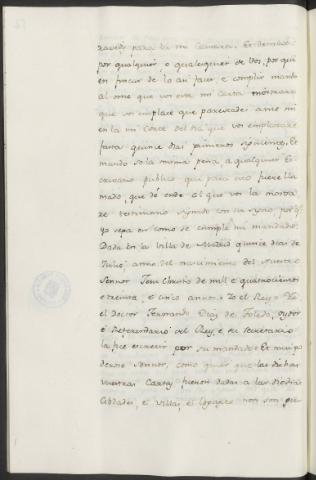 ravedis para la mi Camara. Et demas
por qualquier o qualesquier de Vos, por qui
en fincar de lo asi facer e complir mando
al ome que vos esta mi Carta mostrare
que vos emplace que parescades ante mi
en la mi Corte del dia que vos emplazare
fasta quince dias primeros siguientes. Et
mando so la misma pena, a qualquier Es-
crivano publico que para esto fuere lla-
mado, que dé ende al que vos la mostra-
re testimonio signado con su signo, por q.
yo sepa en como se cumple mi mandado.
Dada en la Villa de Madrid quince dias de
Julio, anno del nascimiento del Nuestro
Sennor Jesu Christo de mill e quatrocientos
e treinta, e cinco annos. Yo el Rey. Yo
el Doctor Fernando Diaz de Toledo, oydor
é Referendario del Rey, e su Secretario
la fice escrevir por su mandado. Et muy po-
deroso Sennor, como quier que las dichas
vuestras Cartas fueron dadas a las dichas
Cibdades, e Villas, e Logares non son